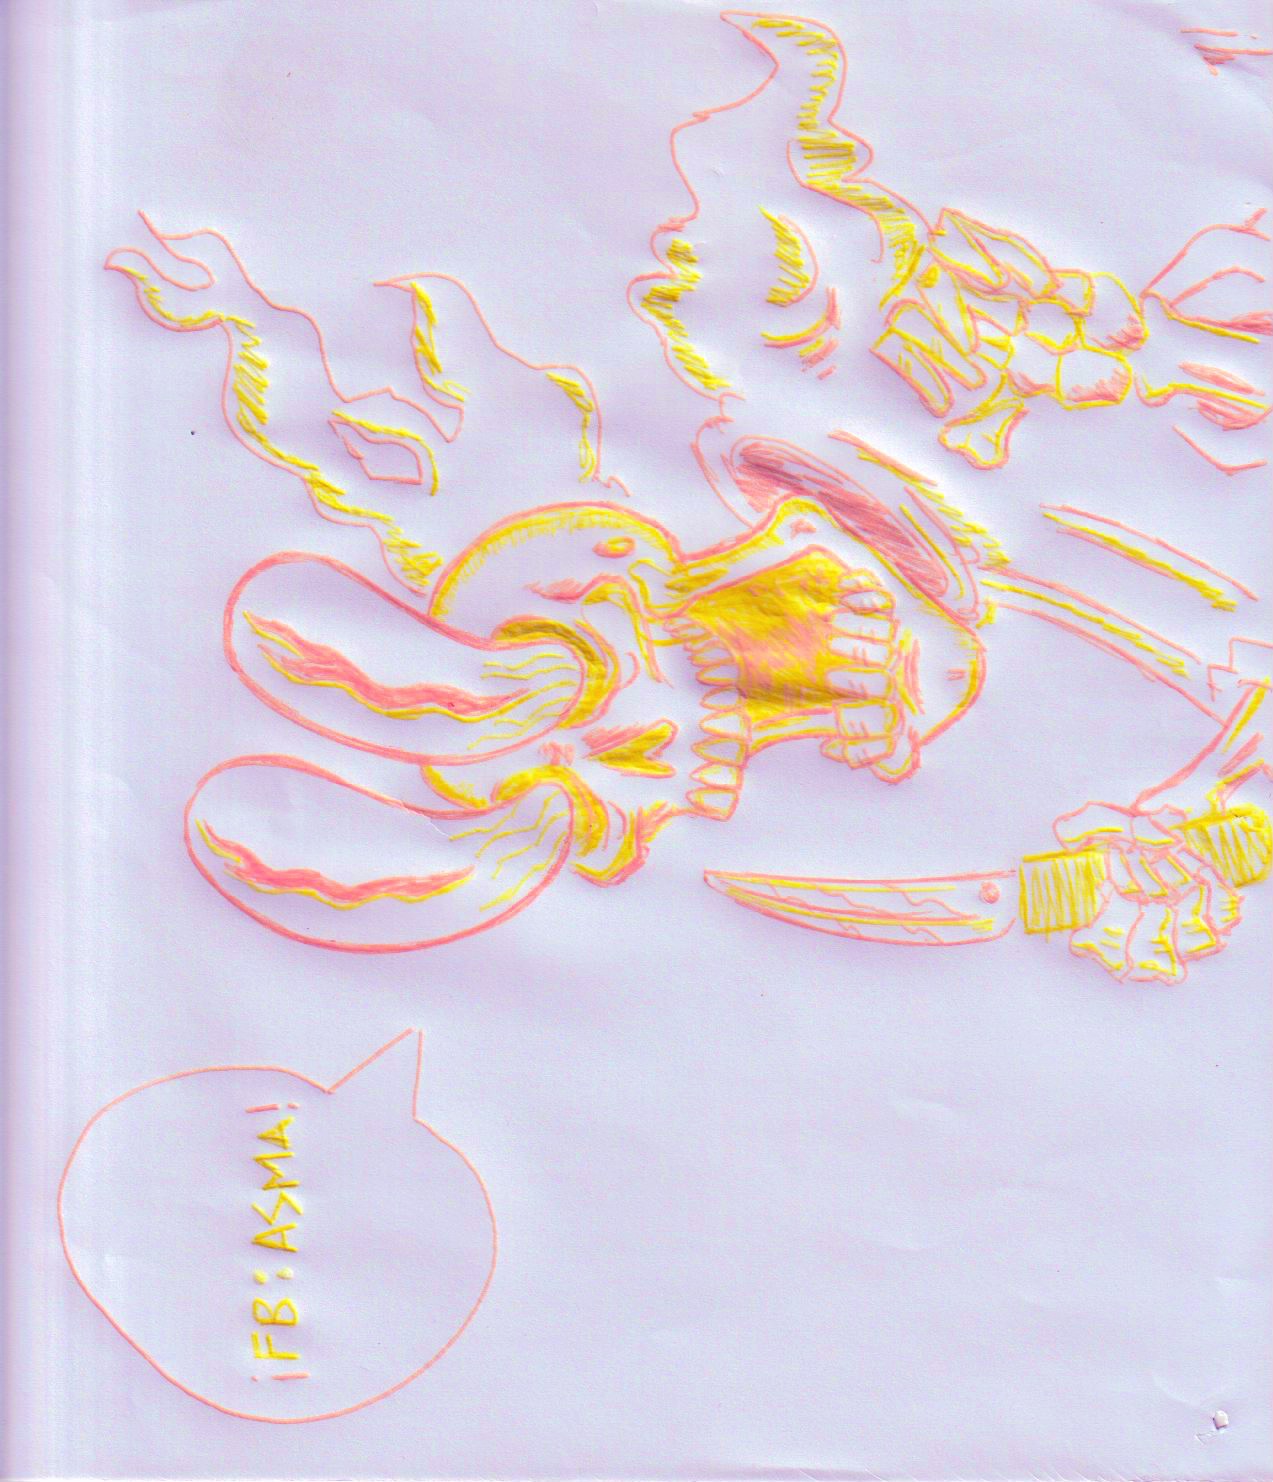 ¡FB: ASMA!